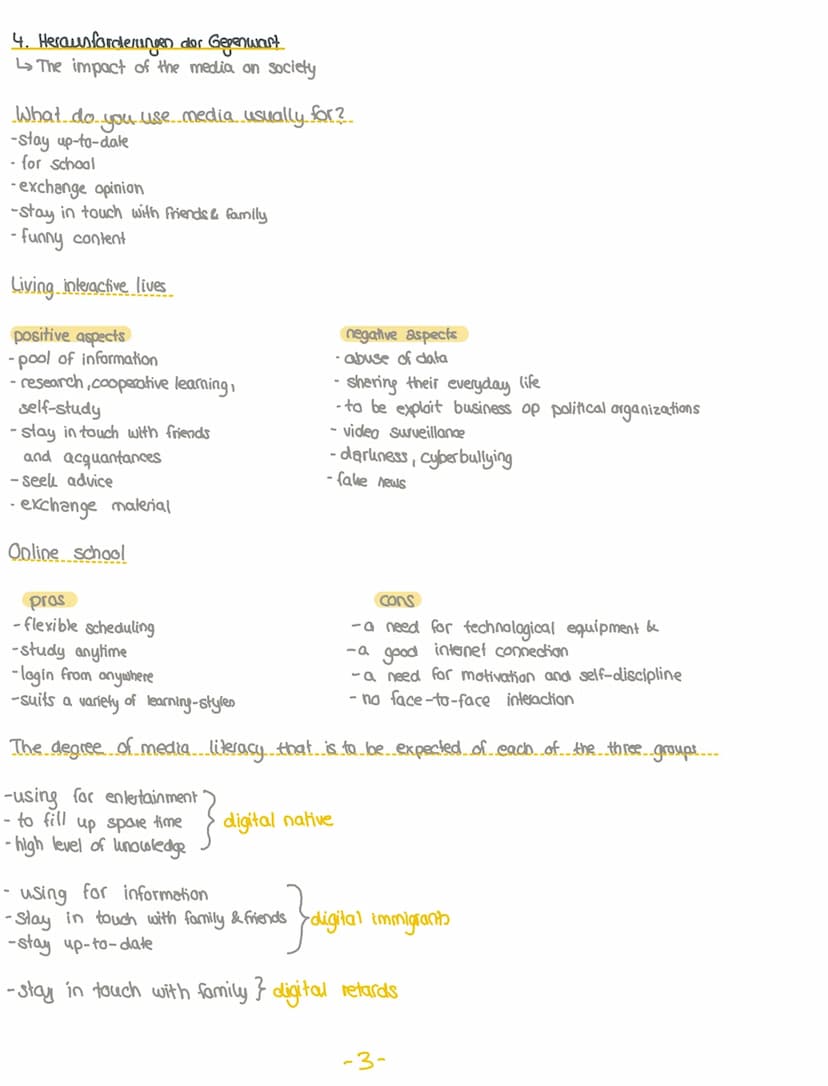 4. Herausforderungen der Gegenwart
↳ The impact of the media on society
What do you use media usually for?
- stay up-to-date
- for school
- exchange opinion
- stay in touch with friends & family
- funny content
Living interactive lives
positive aspects
- pool of information
- research, cooperative learning,
self-study
- stay in touch with friends
and acquantances
- seek advice
- exchange material
negative aspects
- abuse of data
- sharing their everyday life
- to be exploit business op political organizations
- video surveillance
- darkness, cyberbullying
- fake news
Online school
pros
- flexible scheduling
- study anytime
- login from anywhere
- suits a variety of learning-styles
cons
- a need for technological equipment &
- a good internet connection
- a need for motivation and self-discipline
- no face-to-face interaction
The degree of media literacy that is to be expected of each of the three groups
- using for entertainment
- to fill up spare time
- high level of knowledge
} digital native
- using for information
- stay in touch with family & friends
- stay up-to-date
} digital immigrants
- stay in touch with family } digital retards
- 3 -